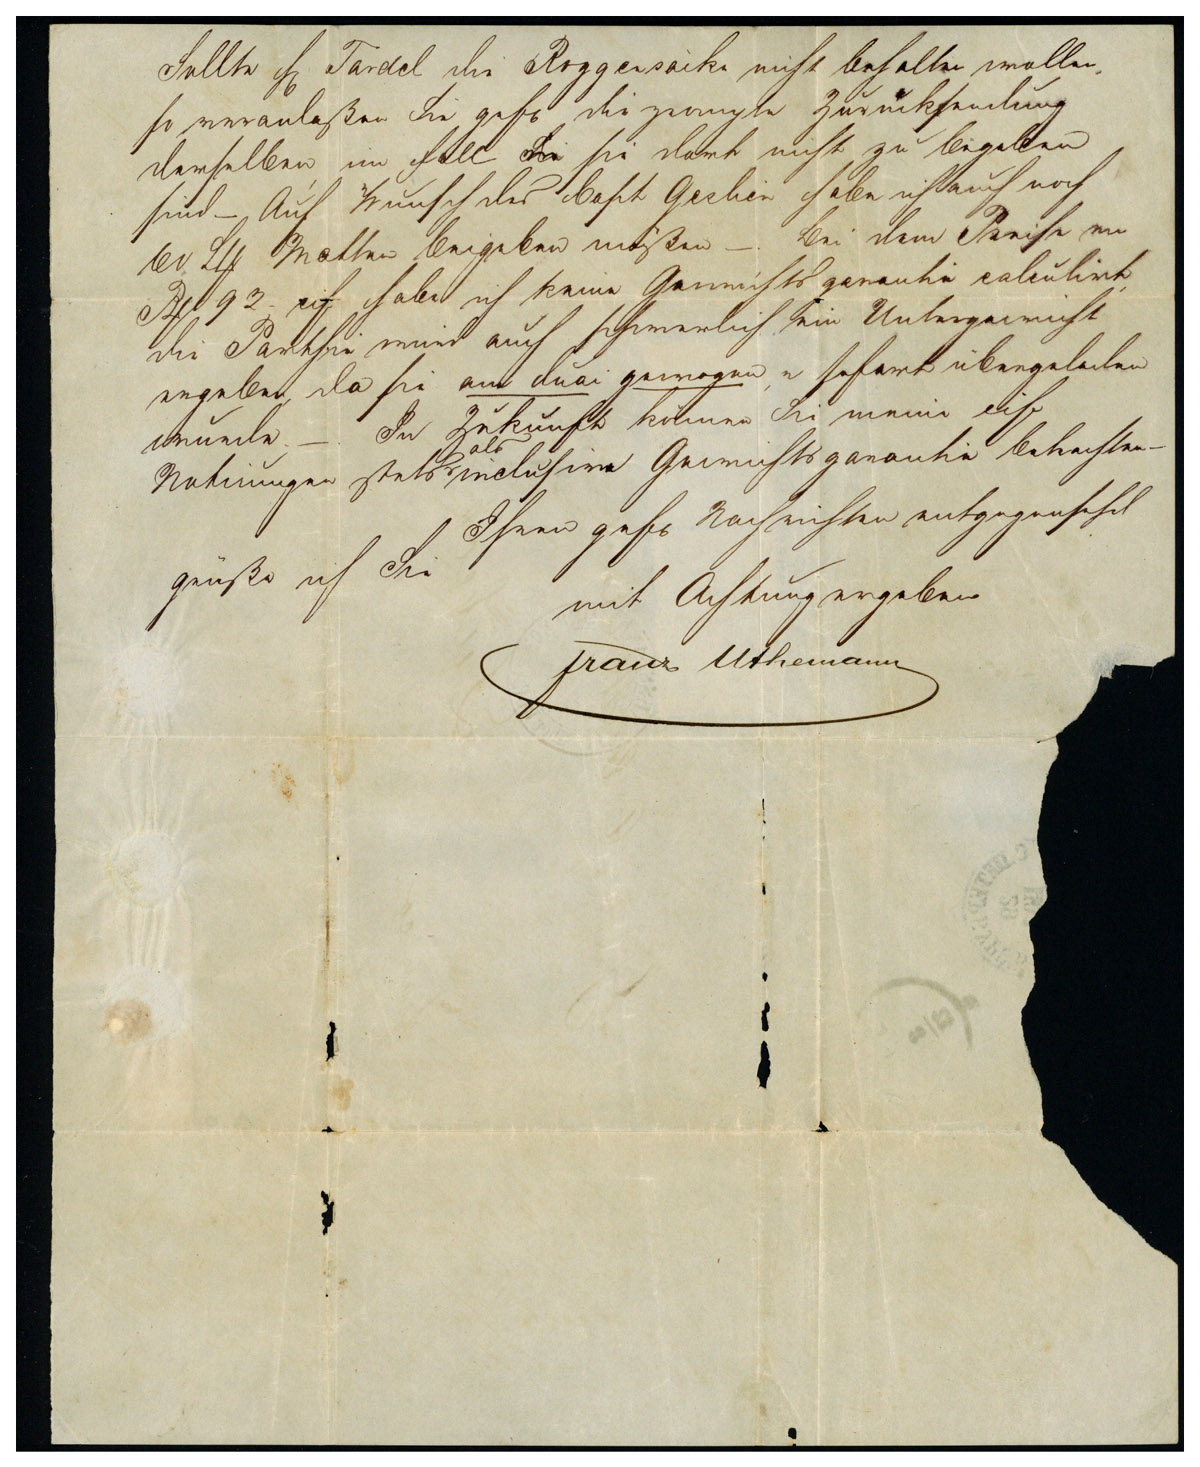 Sollte H. Tardel die Roggensäcke nicht behalten wollen,
so veranlaßen Sie gefs die prompte Zurücksendung
derselben, im Fall sie dort nicht zu begeben
sind – Auf Wunsch des Capt Geslien habe ich auch noch
Matten beigeben müßen –. Bei dem Preise von
92 cif habe ich keine Gewichtsgarantie calculirt,
die Parthie wird auch schwerlich ein Untergewicht
ergeben, da sie am Quai gewogen, u sofort übergeladen
wurde. –. In Zukunft können Sie meine cif
Notirungen stets als inclusive Gewichtsgarantie betrachten –
Ihren gefs Nachrichten entgegensehd
grüße ich Sie
mit Achtung ergeben
Franz Uthemann